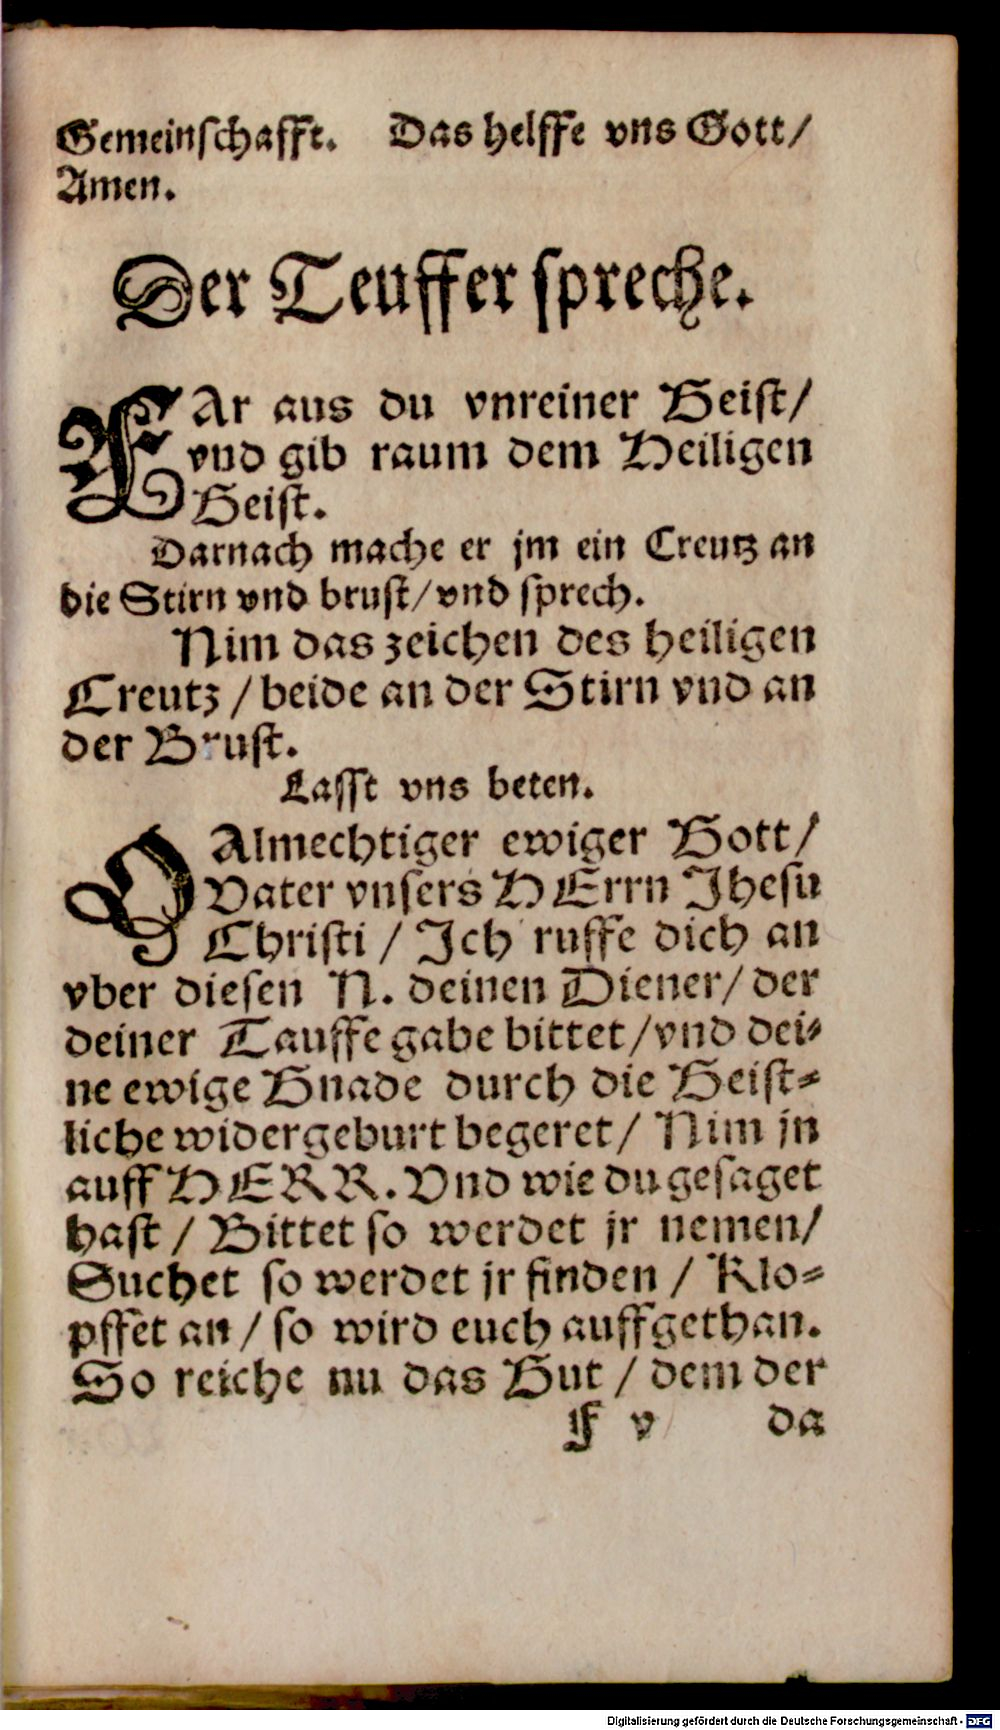 Gemeinschafft. Das helffe vns Gott/
Amen.
Der Teuffer spreche.
FAr aus du vnreiner Geist/
vnd gib raum dem Heiligen
Geist.
Darnach mache er jm ein Creutz an
die Stirn vnd brust/vnd sprech.
Nim das zeichen des heiligen
Creutz/beide an der Stirn vnd an
der Brust.
Lasst vns beten.
O Almechtiger ewiger Gott/
Vater vnsers HErrn Jhesu
Christi/Ich ruffe dich an
vber diesen N. deinen Diener/der
deiner Tauffe gabe bittet/vnd dei⸗
ne ewige Gnade durch die Geist⸗
liche widergeburt begeret/Nim jn
auff HERR. Vnd wie du gesaget
hast/Bittet so werdet jr nemen/
Suchet so werdet jr finden/Klo⸗
pffet an/so wird euch auffgethan.
So reiche nu das Gut/dem der
F v da
Digitalisierung gefördert durch die Deutsche Forschungsgemeinschaft - DFG